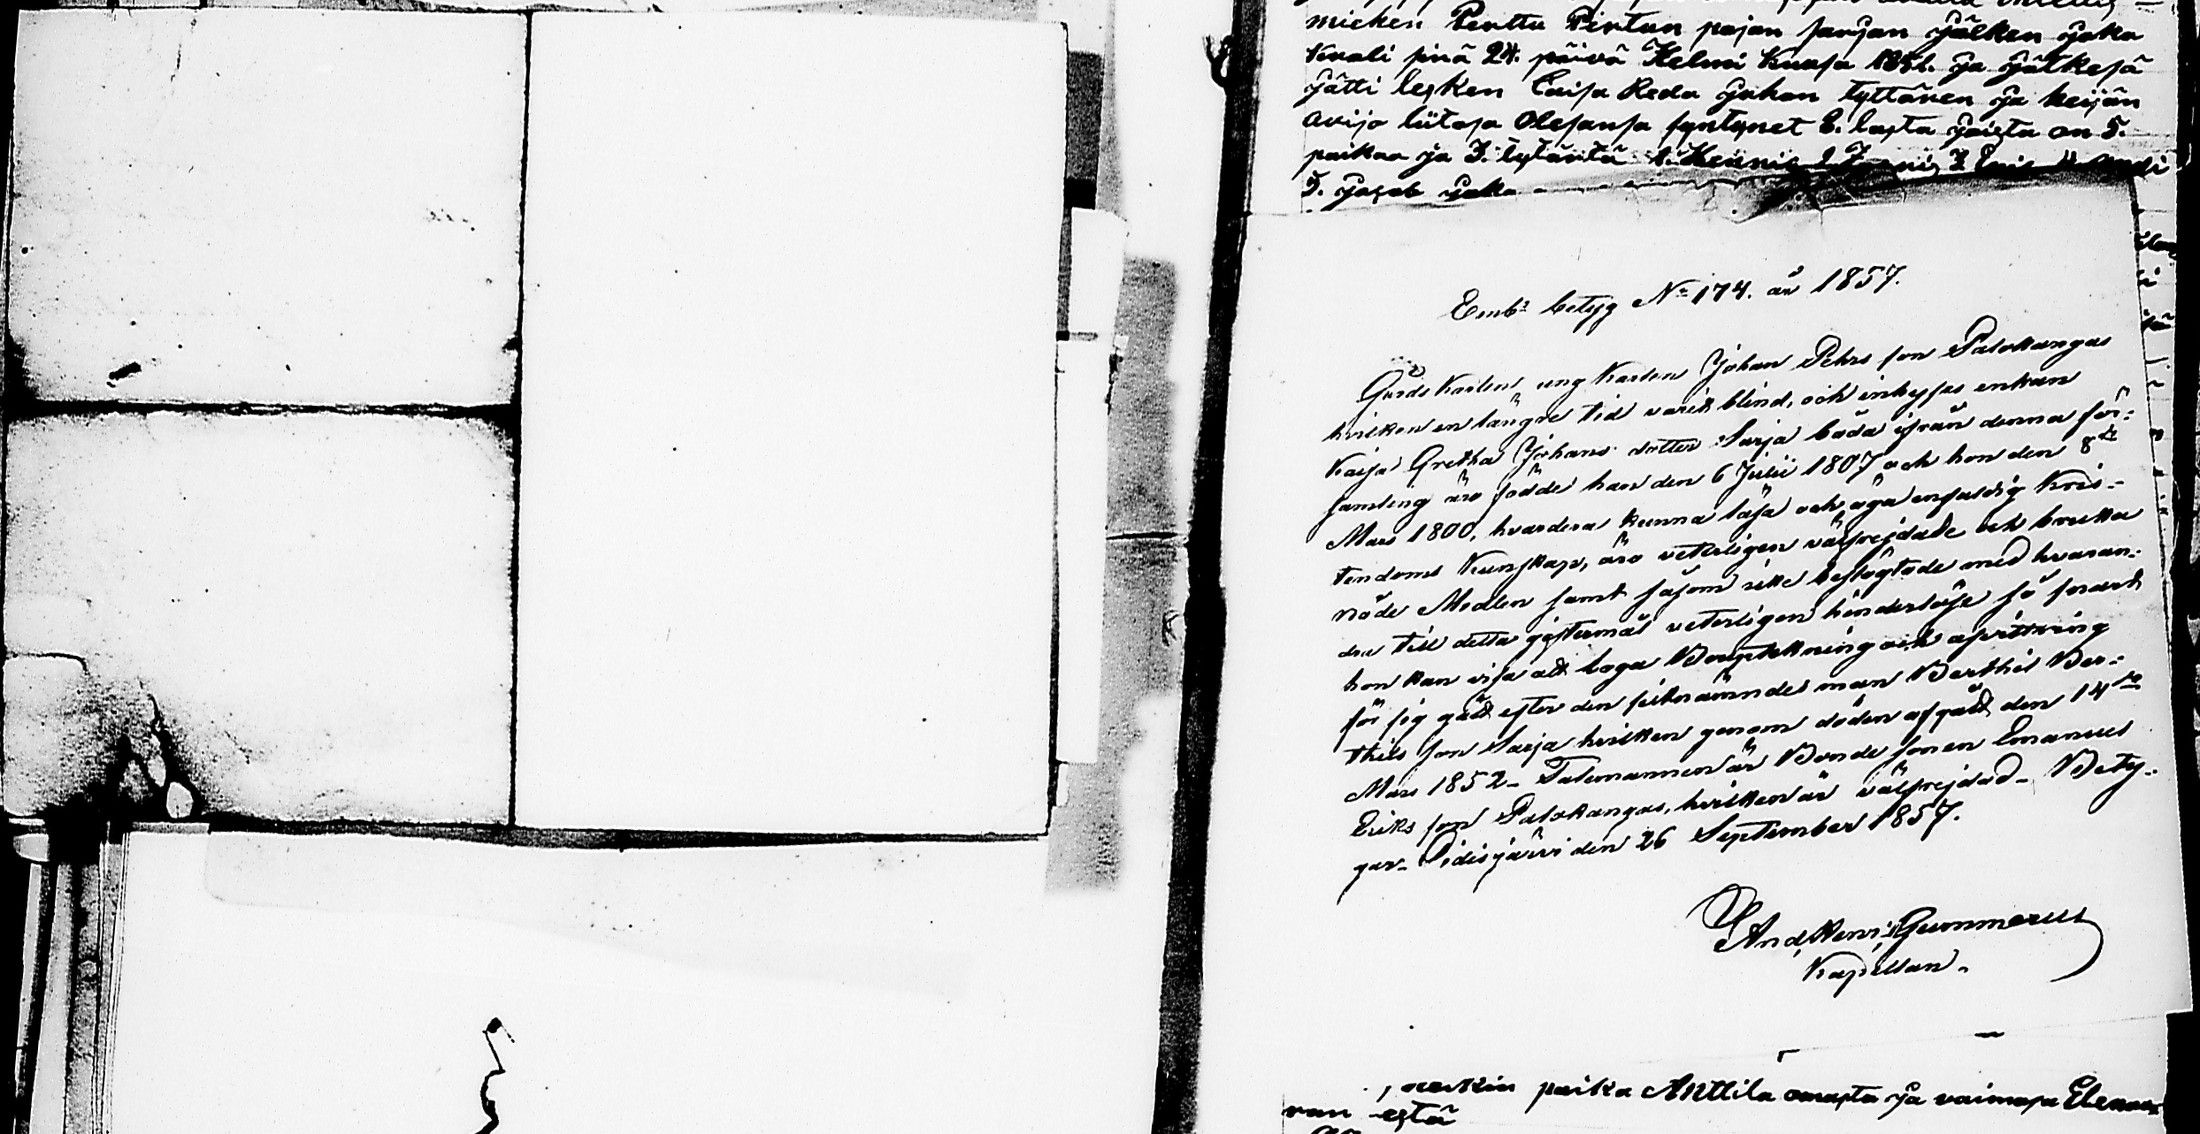 miehen Perttu Pertun pojan sarjan jälken joka
kuoli sinä 24. päivä Helmi kuusa 1852. ja jätkesä
jätti lesken Caisa Reda Juhan tyttären ja heijän
avijo liitosa Olesansa syntynet 8. lasta joista on 5.
poikaa ja 3. tytärtä 1. 
5. Jacob joka
Emb:s betyg No 174. år 1857.
Gårds Karlen, ung Karlen Johan Pehrs son Palokangas
hvilken en längre tid varit blind, och inhyses enkan
Kaisa Gretha Johans dotter Sarja båda ifrån denna för-
samling äro födde han den 6 Julii 1807 och hon den 8de
Mars 1800, hvardera kunna läsa och äga enfaldig Kris-
tendoms Kunskap, äro veterligen välfrejdade och bruka
nåde Medlen samt såsom icke beslägtade med hvaran-
dra till detta giftermål veterligen hinderlöse så snart
hon kan visa att laga Bouptekning och afvittring
för sig gått efter den sistnämndes man Berthil Ber-
thils son Sarja hvilken genom döden afgått den 14de
Mars 1852- Talemannen är Bonde sonen Emanuel
Eriks son Palokangas, hvilken är välfrejdad- Bety-
gar- Pidisjärvi den 26 September 1857.
And. Henr. Gummerus
Kapellan-
, paika Anttila omasta ja vaimosa
estä